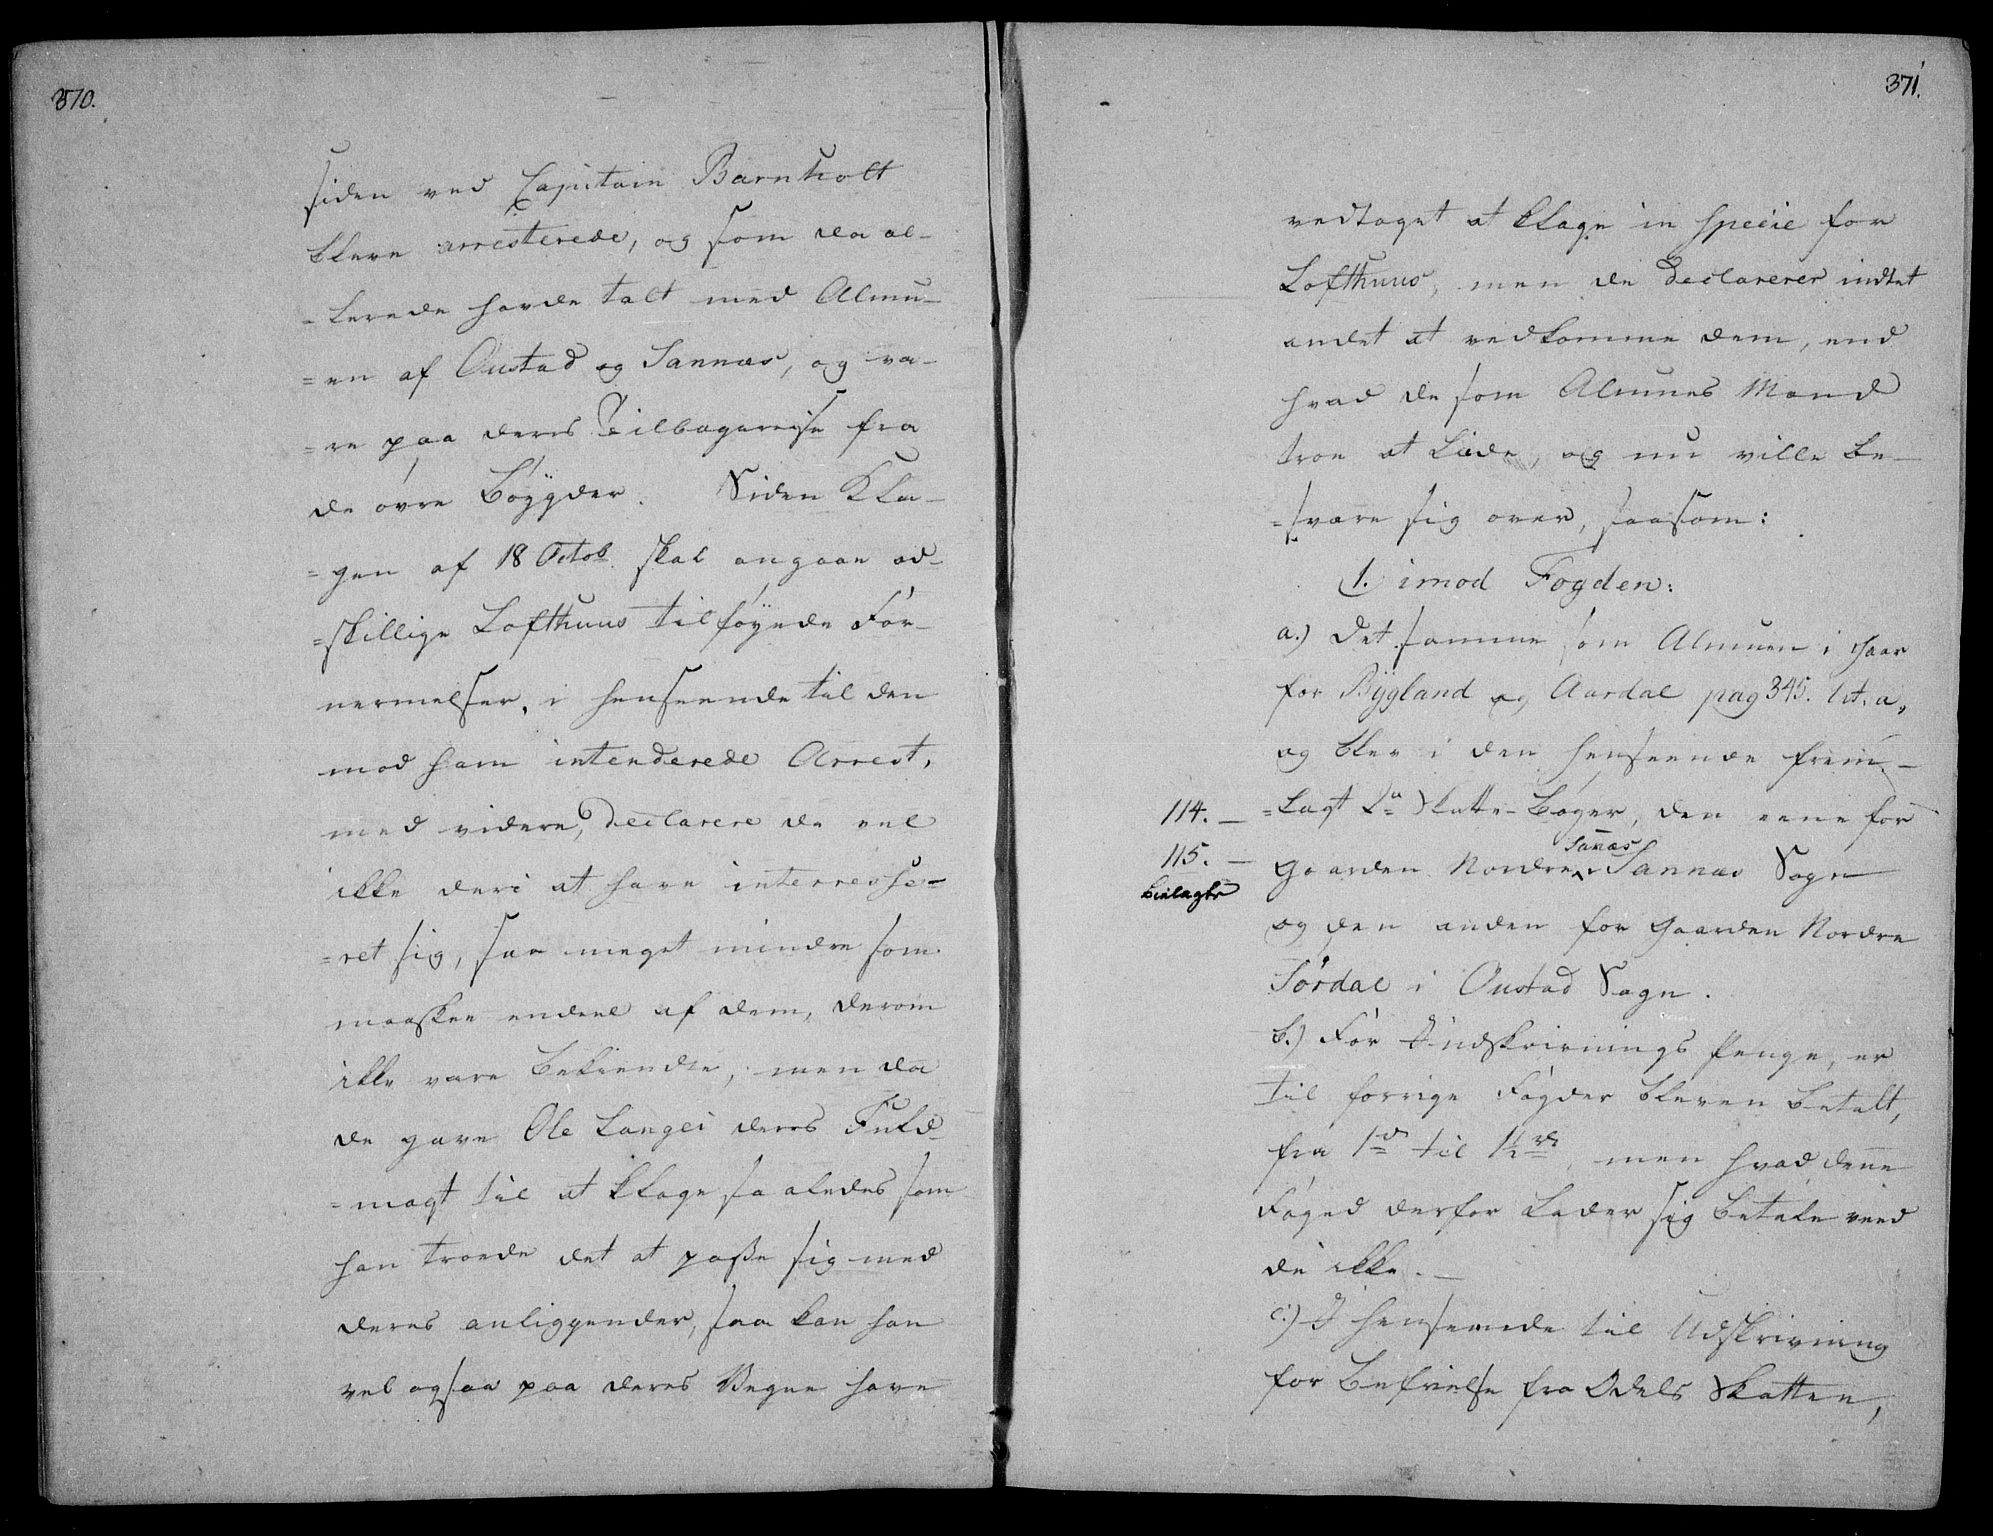 370.
siden ved Capitain Barnholt
bleve arresterede, og som da al-
=lerede havde talt med Almu-
=en af Oustad og Sannæs, og va-
=re paa deres Tilbagereise fra
de øvre Bøygder. Siden Kla-
=gen af 18 Octob. skal angaae ad-
=skillige Lofthuus tilføyede For-
nermelser, i henseende til den
mod ham intenderede Arrest,
med videre, declarere de vel
ikke deri at have interresse-
=ret sig, saa meget mindre som
maaskee endeel af dem, derom
ikke vare bekiendte, men da
de gave Ole Langei deres Fuld-
=magt til at klage saaledes som
han troede det at passe sig med
deres anliggender, saa kan han
vel ogsaa paa deres Vegne have
371.
vedtaget at klage in specie for
Lofthuus, men de declarerer intet
andet at vedkomme dem, end
hvad de som Almues Mænd
troe at lide, og nu ville be-
=svære sig over, saasom:
1. imod Fogden:
a.) Det samme som Almuen i
for Bygland og Aardal pag 345. lit. a,
og blev i den henseende frem-
114. — =lagt 2de Skatte-Bøger, den eene for
Sanæs
115. — Gaarden Nordre Sannæs Sogn
bielagte
og den anden for Gaarden Nordre
Sørdal i Oustad Sogn.
b.) For Indskrivnings Penge, er
til forrige Fogder bleven betalt,
fra 1d til 1½rd, men hvad denne
Foged derfor lader sig betale veed
de ikke. —
c.) I henseende til Udskrivning
for befrielse fra Odels Skatten,